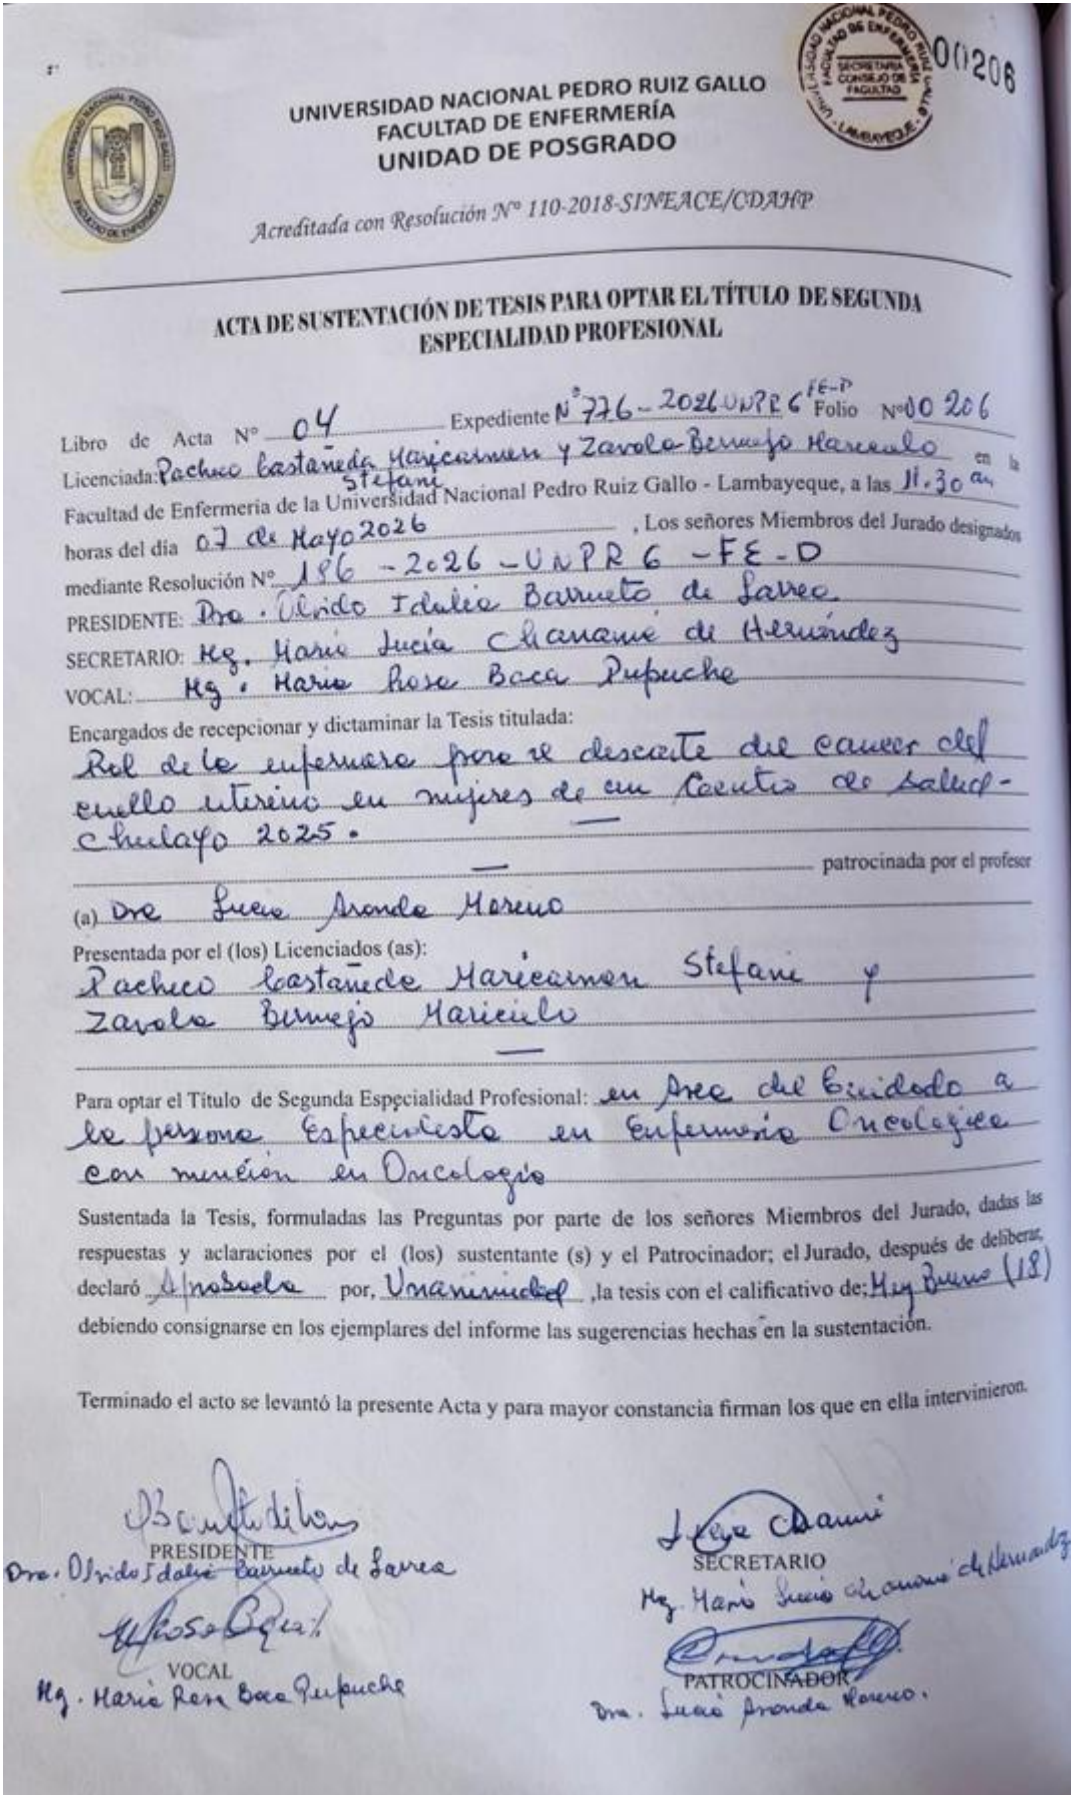 UNIVERSIDAD NACIONAL PEDRO RUIZ GALLO
FACULTAD DE ENFERMERÍA
UNIDAD DE POSGRADO
Acreditada con Resolución Nº 110-2018-SINEACE/CDAHP
SECRETARIA
CONSEJO DE
FACULTAD
LAMBAYEQUE
00206
ACTA DE SUSTENTACIÓN DE TESIS PARA OPTAR EL TÍTULO DE SEGUNDA
ESPECIALIDAD PROFESIONAL
Libro de Acta Nº 04 Expediente Nº 776-2026 UNPRG FE-D Folio Nº 00206
Licenciada: Pacheco Castañeda Maricarmen Stefani y Zavola Bermejo en la
Facultad de Enfermería de la Universidad Nacional Pedro Ruiz Gallo - Lambayeque, a las 11.30 am
horas del día 07 de Mayo 2026, Los señores Miembros del Jurado designados
mediante Resolución Nº 186-2026-UNPRG-FE-D
PRESIDENTE: Dra. Olvido Idalia Barrueto de Larrea
SECRETARIO: Mg. María Lucía Chanamé de Hernández
VOCAL: Mg. María Rosa Baca Pupuche
Encargados de recepcionar y dictaminar la Tesis titulada:
Rol de la enfermera para el descarte del cancer del
cuello uterino en mujeres de un Centro de Salud-
Chiclayo 2025.
patrocinada por el profesor
(a) Dra Lucia Aranda Moreno
Presentada por el (los) Licenciados (as):
Pacheco Castañeda Maricarmen Stefani y
Zavola Bermejo Maricielo
Para optar el Título de Segunda Especialidad Profesional: en Area del Cuidado a
la persona Especialista en Enfermería Oncologica
con mención en Oncología
Sustentada la Tesis, formuladas las Preguntas por parte de los señores Miembros del Jurado, dadas las
respuestas y aclaraciones por el (los) sustentante (s) y el Patrocinador; el Jurado, después de deliberar,
declaró Aprobada por, Unanimidad, la tesis con el calificativo de; Muy Bueno (18)
debiendo consignarse en los ejemplares del informe las sugerencias hechas en la sustentación.
Terminado el acto se levantó la presente Acta y para mayor constancia firman los que en ella intervinieron.
PRESIDENTE
Dra. Olvido Idalia Barrueto de Larrea
SECRETARIO
Mg. María Lucía Chanamé de Hernandez
VOCAL
Mg. María Rosa Baca Pupuche
PATROCINADOR
Dra. Lucía Aranda Moreno.